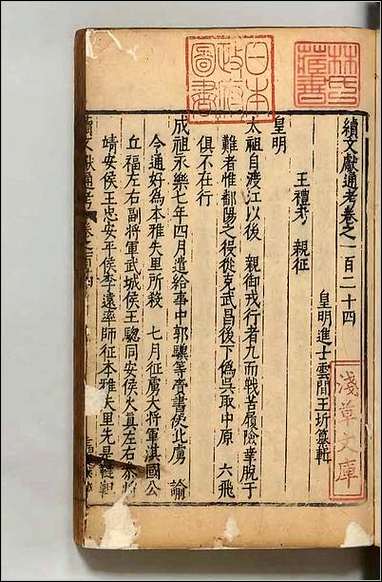 日本
政府
圖書
林氏
藏書
淺草文庫
續文獻通考卷之一百二十四
皇明進士雲間王圻纂輯
王禮考 親征
皇明
太祖自渡江以後 親御戎行者九而戰苦履險幸脫于
難者惟鄱陽之役從克武昌後下偽吳取中原 六飛
俱不在行
成祖永樂七年四月遣給事中郭驥等齎書使北虜 諭
今通好為本雅失里所殺 七月征虜大將軍淇國公
丘福左右副將軍武城侯王聰同安侯火真左右參將
靖安侯王忠安平侯李遠率師征本雅失里先是
續文獻通考 卷之